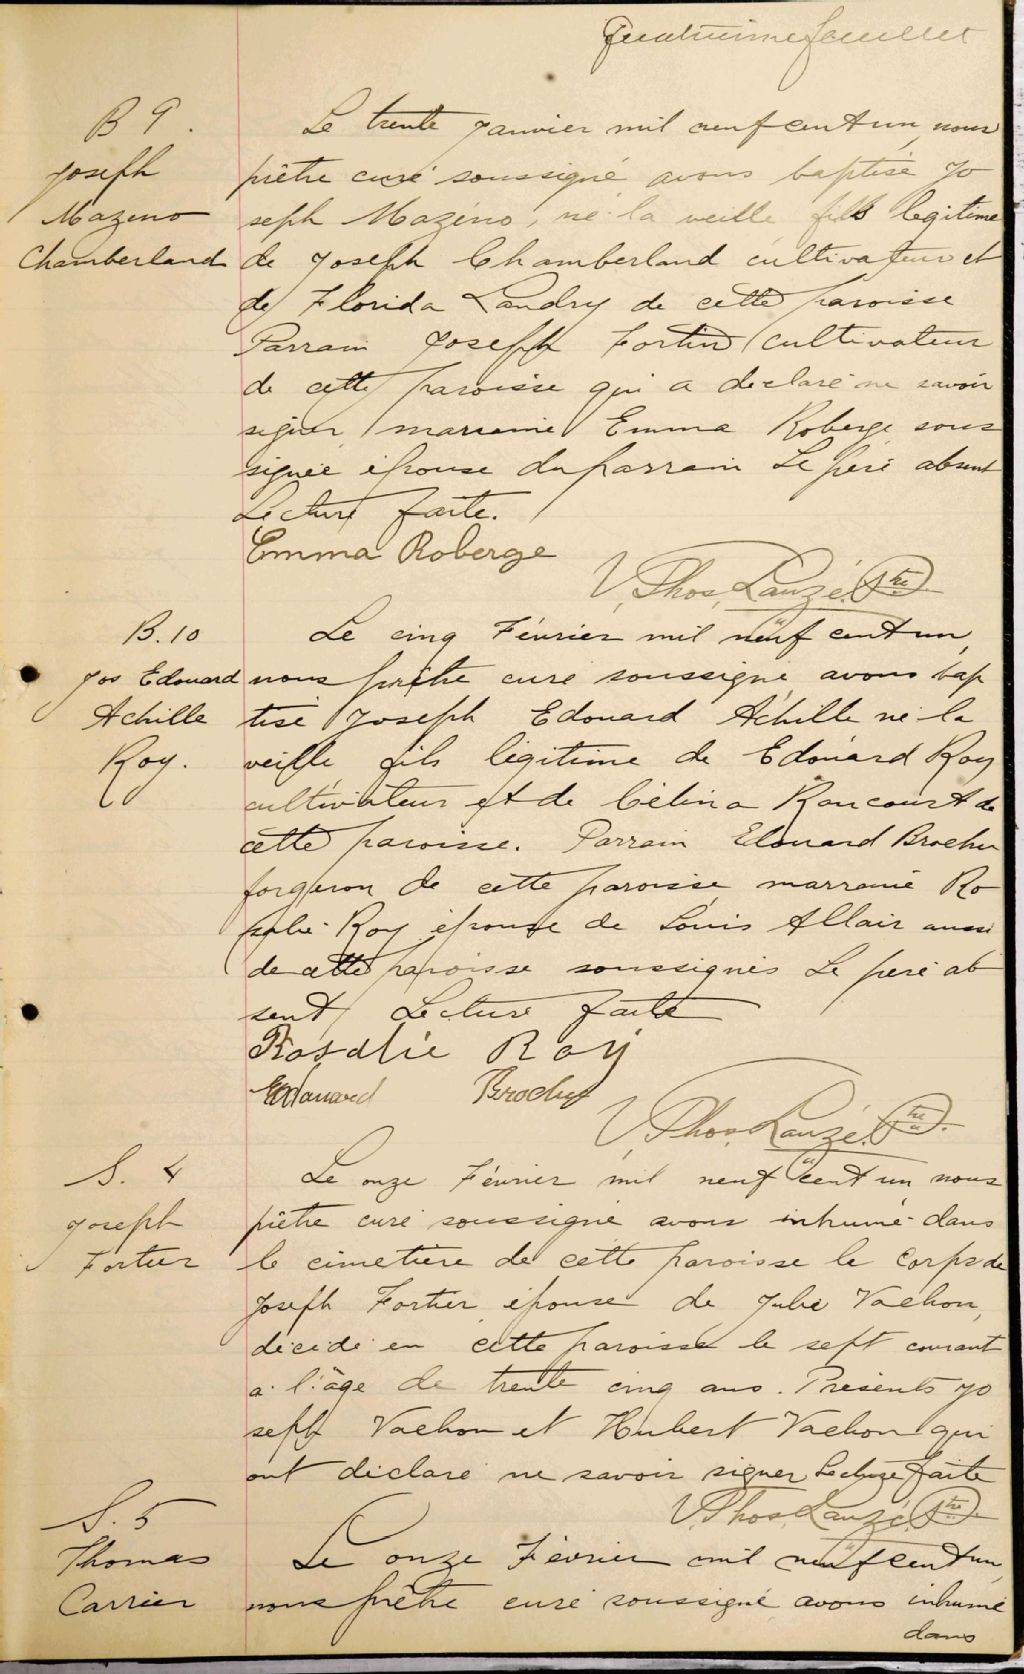 feuillet
B 9.
Joseph
Mazeno
Chamberland
Le trente Janvier mil neuf cent un, nous
prêtre curé soussigné avons baptisé Jo
seph Mazéno, né la veille fils légitime
de Joseph Chamberland cultivateur et
de Florida Landry de cette paroisse
Parrain Joseph Fortin cultivateur
de cette paroisse qui a déclaré ne savoir
signer, marraine Emma Roberge sous
signée épouse du parrain Le père absent
Lecture faite.
Emma Roberge
V. Thos. Lauzé. Ptre
B. 10
Jos Edouard
Achille
Roy.
Le cinq Février mil neuf cent un,
nous prêtre curé soussigné, avons bap
tisé Joseph Edouard Achille né la
veille, fils légitime de Edouard Roy
cultivateur et de Célina Rancourt de
cette paroisse. Parrain Edouard Brochu
forgeron de cette paroisse, marraine Ro
salie Roy épouse de Louis Allair aussi
de cette paroisse soussignés Le père ab
sent Lecture faite
Rosalie Roy
Edouard Brochu
V. Thos. Lauzé. Ptre
S. 4
Joseph
Fortier
Le onze Février mil neuf cent un nous
prêtre curé soussigné avons inhumé dans
le cimetière de cette paroisse le corps de
Joseph Fortier, épouse de Julie Vachon,
décédé en cette paroisse le sept courant
a l'âge de trente cinq ans. Présents Jo
seph Vachon et Hubert Vachon qui
ont déclaré ne savoir signer Lecture faite
V. Thos. Lauzé. Ptre
S. 5
Thomas
Carrier
Le onze Février mil neuf cent un,
nous prêtre curé soussigné avons inhumé
dans